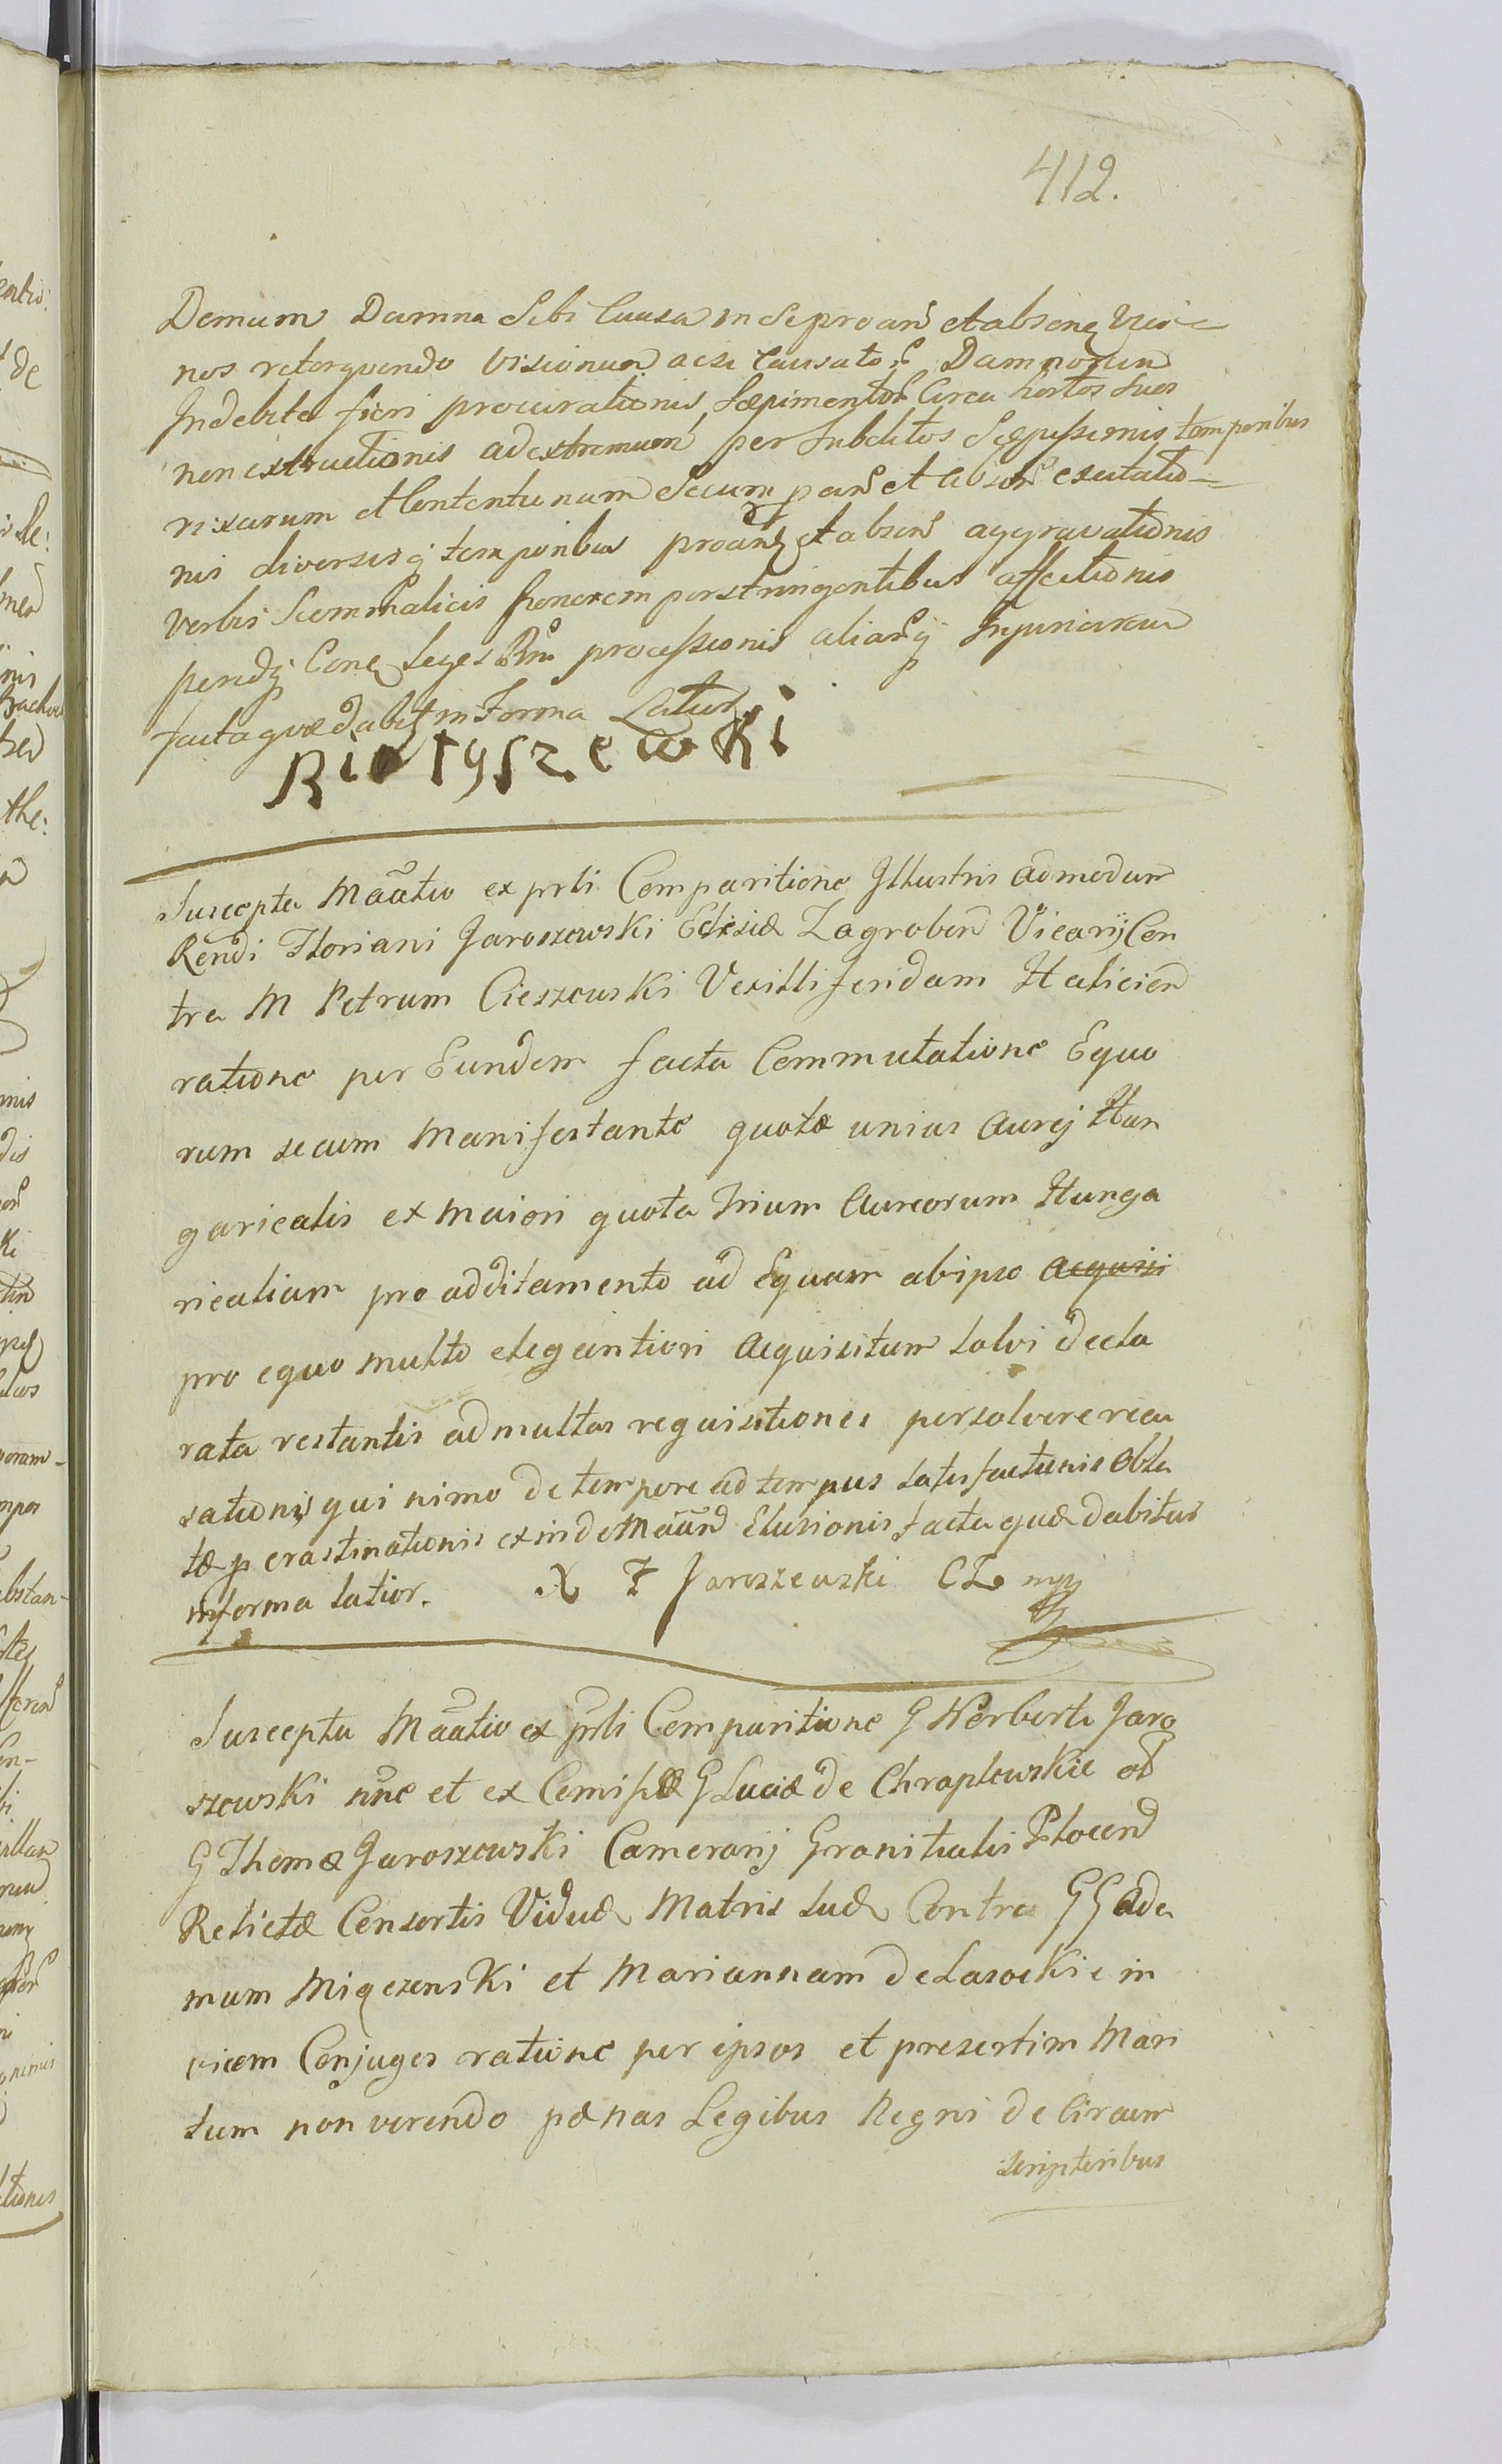 412.
Demum Damna Sibi Causa in Se pro ans et absenq vici-
nos retorquendo Visionum acsi Causator Damnorum
Indebite fieri procurationis Sæpimentor Circa hortos suos
non extructionis ad extremum per Subditos Sæpissimis temporibus
rixarum et Contentionum Secum et absen excitatio-
nis diversisq temporibus et absen aggravationis
verbis Scommaticis honorem perstringentibus affectionis
Conq Leges Rni processionis aliarq Injuriarum
facta quæ dabit in Forma Latior.
Suscepta Maãtio ex prli Comparitione Illustris admodum
Rendi Floriani Jaroszewski Eclesiæ Zagroben Vicarij Con
tra M Petrum Cieszewski Vexilliferidam Halicien
ratione per Eundem facta Commutatione Equo
rum secum Manifestante quotæ unius Aurej Hun
garicalis ex maiori quota trium Aureorum Hunga
ricalium pro additamento ad Equum ab ipso acquisi
pro equo multo elegantiori Acquisitum solvi decla
rata restantis ad multas requisitiones persolvere recu
sationis qui nimo de tempore ad tempus satisfactionis obla
tæ crastinationis exinde Maãnd Elusionis facta quæ dabitur
in forma latior. X F Jaroszewski CZ mpp
Suscepta Maãtio ex prli Comparitione G Norberti Jaro
szewski nnc et ex Comissæ G Luciæ de Chraplewskie ol
G Thomæ Jaroszewski Camerarij Granitialis Plocend
Relictæ Consortis Viduæ Matris suæ Contra GG Ada
mum Miączenski et Mariannam de Lasockie in
vicem Conjuges ratione per ipsos et presertim Mari
tum non verendo pænas Legibus Regni de Circum
scriptoribus